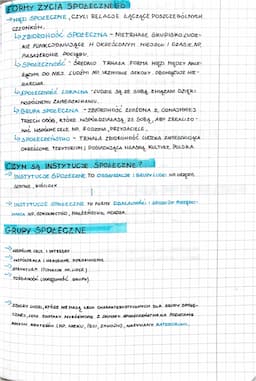 FORMY ŻYCIA SPOŁECZNEGO
→ WIĘZI SPOŁECZNE, CZYLI RELACJE ŁĄCZĄCE POSZCZEGÓLNYCH
CZŁONKÓW.
↳ ZBIOROWOŚĆ SPOŁECZNA - NIETRWAŁE GRUPY LUDZ-
KIE FUNKCJONUJĄCE W OKREŚLONYM MIEJSCU I CZASIE, NP.
PASAŻEROWIE POCIĄGU.
↳ SPOŁECZNOŚĆ - ŚREDNIO TRWAŁA FORMA WIĘZI MIĘDZY
DO NIEJ LUDŹMI NP. UCZNIOWIE SZKOŁY
↳ SPOŁECZNOŚĆ LOKALNA - LUDZIE SĄ ZE SOBĄ ZWIĄZANI DZIĘKI
WSPÓLNEMU ZAMIESZKIWANIU.
↳ GRUPA SPOŁECZNA - ZBIOROWOŚĆ ZŁOŻONA Z CONAJMNIEJ
TRZECH OSÓB, KTÓRE WSPÓŁDZIAŁAJĄ ZE SOBĄ, ABY ZREALIZO-
WAĆ WSPÓLNE CELE NP. RODZINA, PRZYJACIELE.
↳ SPOŁECZEŃSTWO - TRWAŁA ZBIOROWOŚĆ LUDZKA ZAMIESZKUJĄCA
OKREŚLONE TERYTORIUM I POSIADAJĄCA WŁASNĄ KULTURĘ, POLSKA.
CZYM SĄ INSTYTUCJE SPOŁECZNE?
→ INSTYTUCJE SPOŁECZNE TO ORGANIZACJE I GRUPY LUDZI NP. URZĘDY,
SZKOŁY, KOŚCIOŁY
→ INSTYTUCJE SPOŁECZNE TO FORMY DZIAŁALNOŚCI I SPOSOBY POSTĘPO-
WANIA NP. MAŁŻEŃSTWO,
GRUPY SPOŁECZNE
→ WSPÓLNE CELE I INTERESY
→ WSPÓŁPRACA I
→ STRUKTURA
→ TOŻSAMOŚĆ (ODRĘBNOŚĆ GRUPY)
→ ZBIORY OSÓB, KTÓRE NIE MAJĄ CECH CHARAKTERYSTYCZNYCH DLA GRUPY SPOŁE-
CZNEJ, ZOSTAŁY WYRÓŻNIONE Z SPOŁECZEŃSTWA NA PODSTAWIE
KRYTERIÓW (NP. WIEKU, PŁCI, ZAWODU), NAZYWAMY KATEGORIAMI.